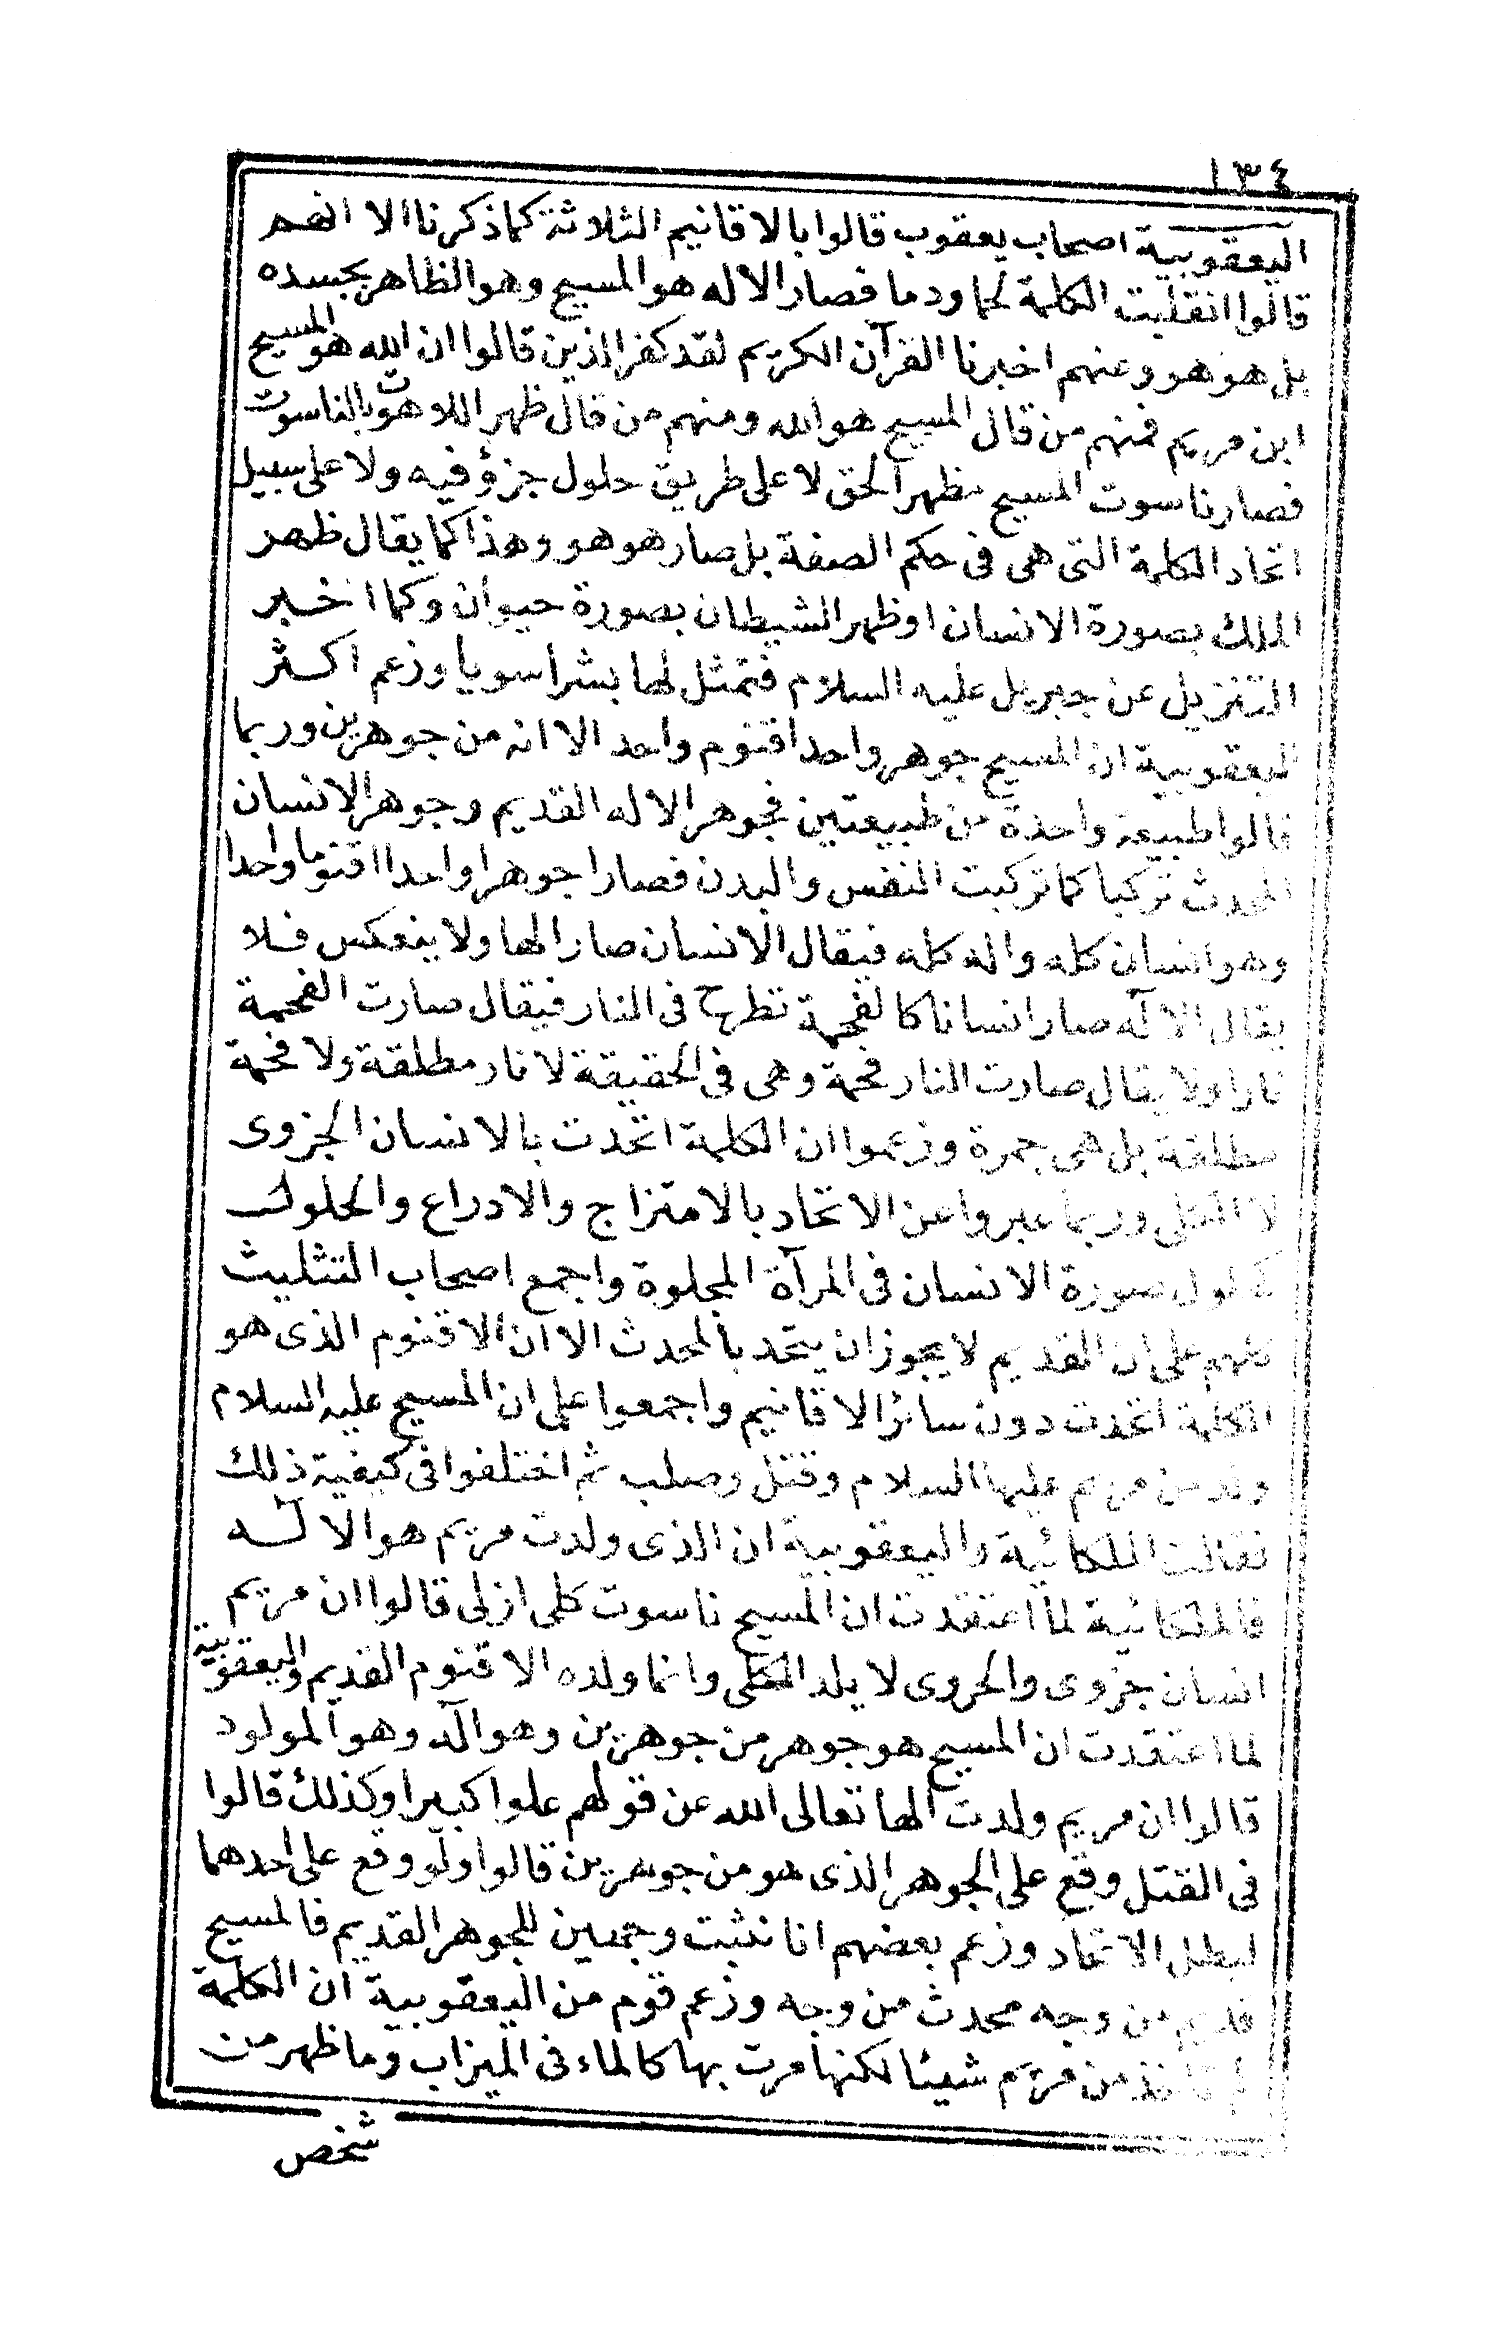 ١٣٤
اليعقوبية اصحاب يعقوب قالوا بالاقانيم الثلاثة كما ذكرنا الا انهم
قالوا انقلبت الكلمة لحما ودما فصار الاله هو المسيح وهو الظاهر بجسده
بل هو هو وعنهم اخبرنا القرآن الكريم لقد كفر الذين قالوا ان الله هو المسيح
ابن مريم فمنهم من قال المسيح هو الله ومنهم من قال ظهر اللاهوت بالناسوت
فصار ناسوت المسيح مظهر الحق لا على طريق حلول جزؤ فيه ولا على سبيل
اتحاد الكلمة التى هى فى حكم الصفة بل صار هو هو وهذا كما يقال ظهر
الملك بصورة الانسان او ظهر الشيطان بصورة حيوان وكما اخبر
التنزيل عن جبريل عليه السلام فتمثل لها بشرا سويا وزعم اكثر
اليعقوبية ان المسيح جوهر واحد اقنوم واحد الا انه من جوهرين وربما
قالوا طبيعة واحدة من طبيعتين فجوهر الاله القديم وجوهر الانسان
المحدث تركبا كما تركبت النفس والبدن فصارا جوهرا واحدا اقنوما واحدا
وهو انسان كله واله كله فيقال الانسان صار الها ولا ينعكس فلا
يقال الاله صار انسانا كالفحمة تطرح فى النار فيقال صارت الفحمة
نارا ولا يقال صارت النار فحمة وهى فى الحقيقة لا نار مطلقة ولا فحمة
مطلقة بل هى جمرة وزعموا ان الكلمة اتحدت بالانسان الجزوى
لا الكلى وربما عبروا عن الاتحاد بالامتزاج والادراع والحلول
كحلول صورة الانسان فى المرآة المجلوة واجمع اصحاب التثليث
كلهم على ان القديم لا يجوز ان يتحد بالمحدث الا ان الاقنوم الذى هو
الكلمة اتحدت دون سائر الاقانيم واجمعوا على ان المسيح عليه السلام
ولد من مريم عليها السلام وقتل وصلب ثم اختلفوا فى كيفية ذلك
فقالت الملكائية واليعقوبية ان الذى ولدت مريم هو الاله
فالملكائية لما اعتقدت ان المسيح ناسوت كلى ازلى قالوا ان مريم
انسان جزوى والجزوى لا يلد الكلى وانما ولده الاقنوم القديم واليعقوبية
لما اعتقدت ان المسيح هو جوهر من جوهرين وهو اله وهو المولود
قالوا ان مريم ولدت الها تعالى الله عن قولهم علوا كبيرا وكذلك قالوا
فى القتل وقع على الجوهر الذى هو من جوهرين قالوا ولو وقع على احدهما
لبطل الاتحاد وزعم بعضهم انا نثبت وجهين للجوهر القديم فالمسيح
قديم من وجه محدث من وجه وزعم قوم من اليعقوبية ان الكلمة
لم تاخذ من مريم شيئا لكنها مرت بها كالماء فى الميزاب وما ظهر من
شخص